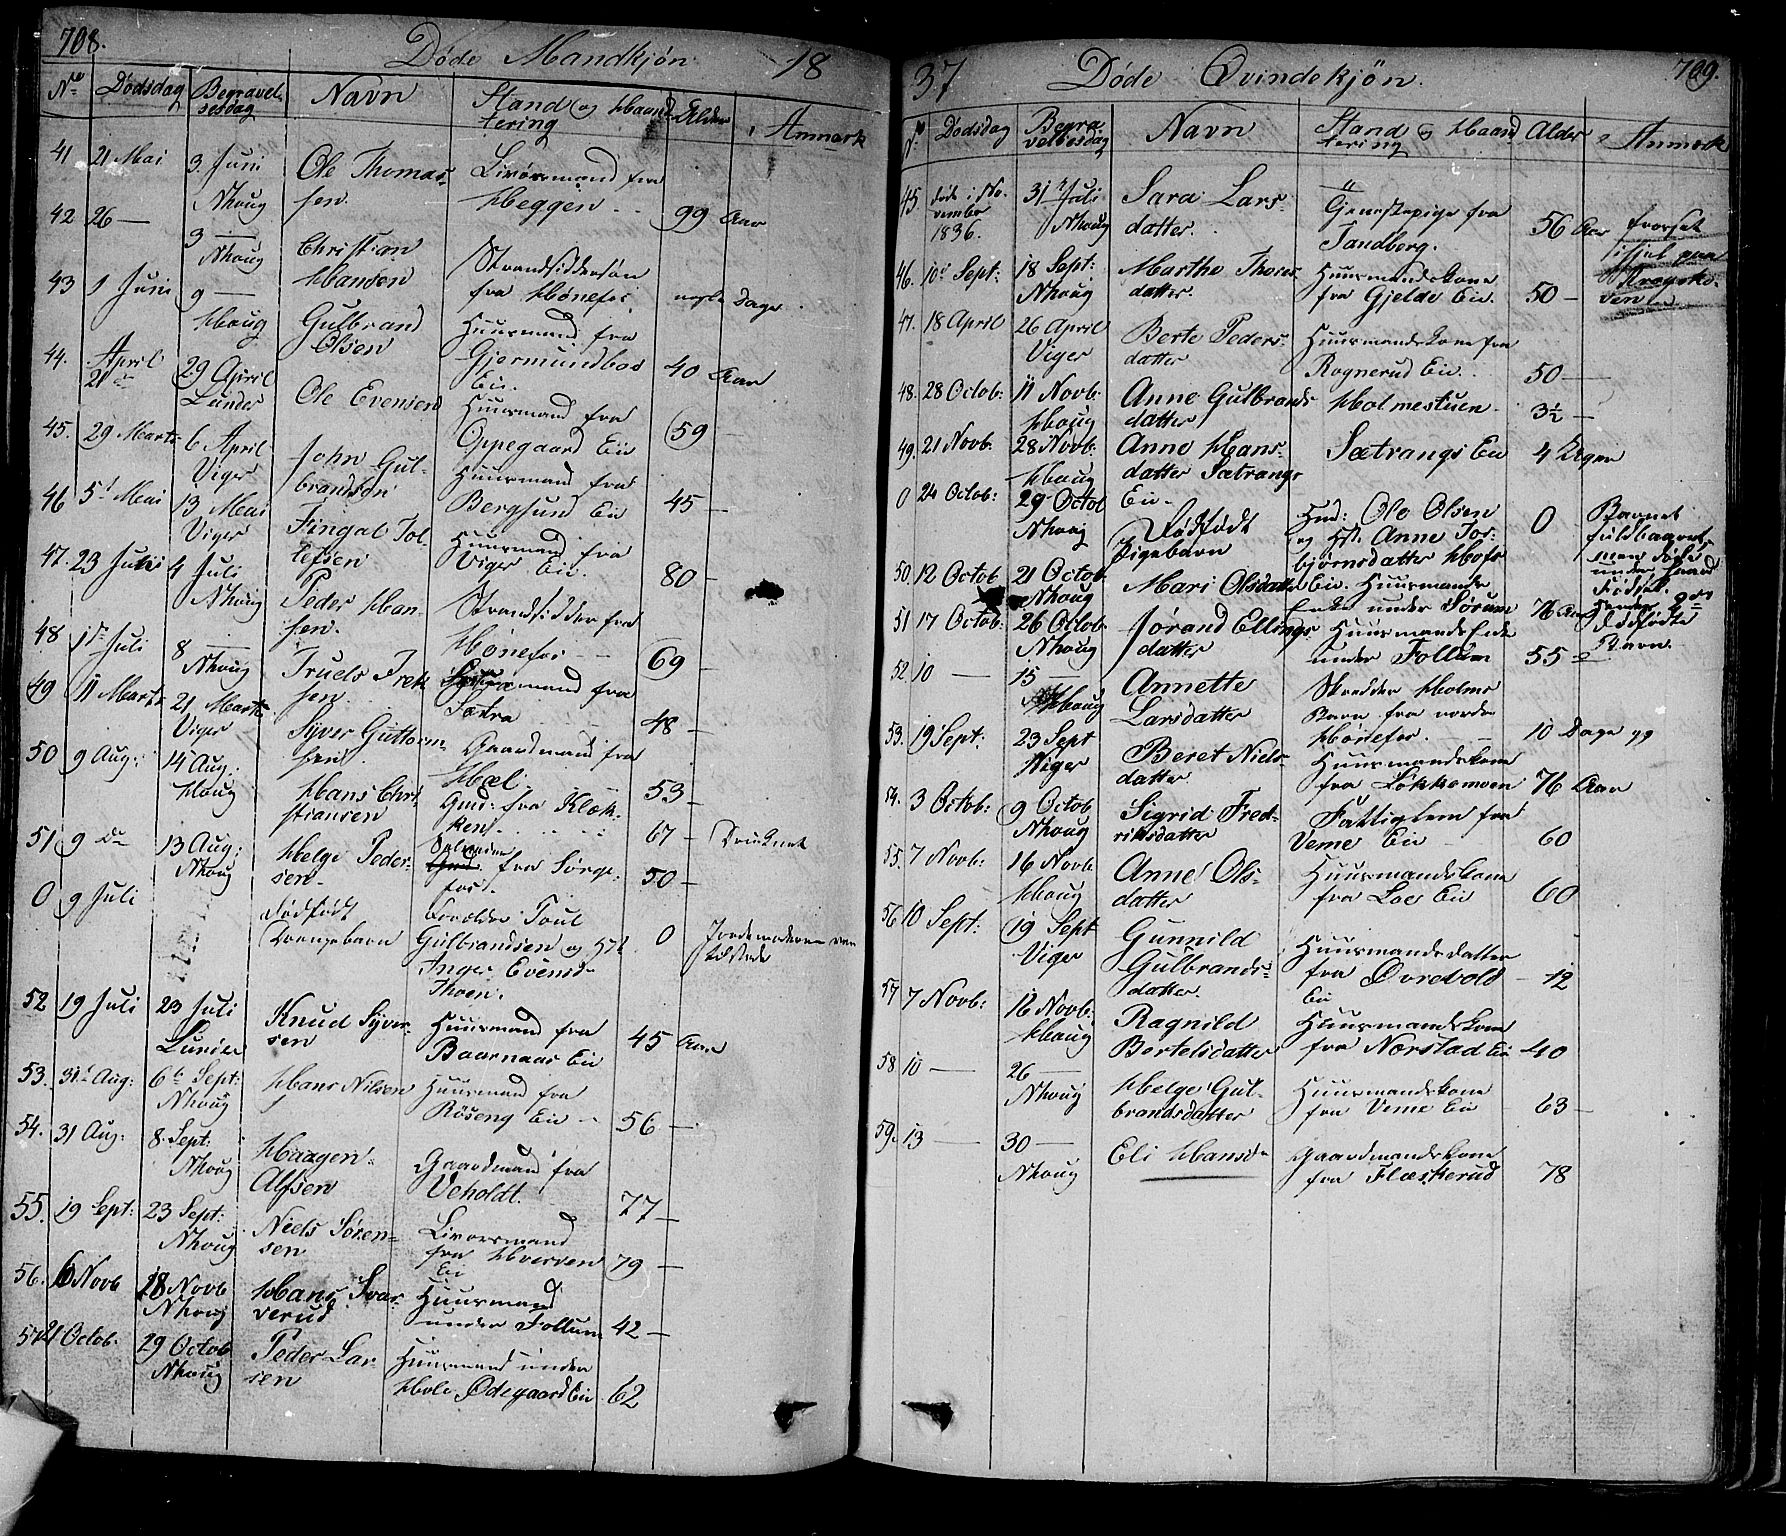 708.
Døde Mandkjøn 18
No Dødsdag Begravelsesdag Navn Stand og Haandtering Alder Anmærk
41 21 Mai 3. Juni Nhoug Ole Thomassen Livørsmand fra Heggen 99 Aar
42 26 — 3 — Nhoug Christian Hansen Strandsiddersøn fra Hønefos nogle Dage
43 1 Juni 9 — Houg Gulbrand Olsen Huusmand fra Gjermundboe Eie. 40 Aar
44. April 21de 29 April Lunder Ole Evensen Huusmand fra Oppegaard Eie 59 —
45. 29 Marts 6 April Viger John Gulbrandsen Huusmand fra Bergsund Eie 45 —
46 5t Mai 13 Mai Viger Fingal Tollefsen Huusmand fra Viger Eie. 80 —
47. 23 Juni 4 Juli Nhoug Peder Hansen. Strandsidder fra Hønefos — 69 —
48 1ste Juli 8 — Nhoug Truels Trulssen Huusmand fra Sætra 48 —
49 11 Marts 21 Marts Viger Syver Guttormsen Gaardmand fra Hæl 53 —
50 9 Aug: 14 Aug: Houg Hans Christiansen Gmd: fra Klækken 67 — Druknet
51 9 De 13 Aug: Nhoug Helge Pedersen fra Sørgefos. 50 —
0 9 Juli Dødfødt Drengebarn Forældre Poul Gulbrandsen og Hst. Inger Evensd. Thoen. 0 Jordemoderen var tilstede
52 19 Juli 23 Juli Lunder Knud Syversen Huusmand fra Baarnaas Eie 45 Aar
53. 31t Aug: 6te Sept: Nhoug Hans Nilsen Huusmand fra Röseng Eie — 56 —
54. 31 Aug: 8. Sept: Nhoug Haagen Alfsen Gaardmand fra Veholdt. 77 —
55. 19 Sept: 23 Sept: Nhoug Niels Sørensen Livorsmand fra Hverven Eie 79 —
56. 6 Novb 18 Novb Nhoug Hans Svarverud Huusmand under Follum 42 —
57 21 Octob. 29 Octob Nhoug Peder Larsen Huusmand under Hole Ødegaard Eie 62
37 Døde Qvindekjøn. 709.
No Dødsdag Begravelsesdag Navn Stand og Haandtering Alder Anmærk
45. døde i November 1836. 31te Juli Nhoug Sara Larsdatter. Tjenestepige fra Tandberg. 56 Aar
46. 10de Sept: 18 Sept: Nhoug Marthe Thoresdatter. Huusmandskone fra Gjelde Eie. 50 —
47. 18 April 26 April Viger Berte Pedersdatter Huusmandskone fra Rognerud Eie. 50 —
48. 28 Octob: 11 Novb: Houg Anne Gulbrandsdatter Holmestuen 3½ —
49. 21 Novb. 28 Novb: Houg Anne Hansdatter Sætrangs Eie. Sætrangs Eie 4 Uger
0 24 Octob: 29 Octob Nhoug Dødfødt Pigebarn Hmd: Ole Olsen og Hst. Anne Torbjørnsdatter Hofs Eie. 0 Barnet fuldbaaret, men døde under Fødsel. Dødfødte Barn.
50. 12 Octob 21 Octob Nhoug Mari Olsdatter Huusmands Enke under Sørum 76 Aar
51 17 Octob: 26 Octob. Nhoug Jørand Ellingsdatter Huusmands Enke under Follum 55
52. 10 — 15 — Houg Annette Larsdatter Skredder Holms Barn fra nordre Hønefos. — 10 Dage gg
53. 19 Sept: 23 Sept Viger Beret Nielsdatter Huusmandskone fra Løkkemoen 76 Aar
54. 3 Octob: 9 Octob Nhoug Sigrid Fredriksdatter Fattiglem fra Veme Eie 60
55. 7 Novb: 16 Novb. Houg Anne Olsdatter Huusmandskone fra Loe Eie 60
56 10 Sept: 19 Sept Viger Gunnild Gulbrandsdatter. Huusmandsdatter fra Øvrebold Eie — 12
57 7 Novb: 16 Novb: Houg Ragnild Bertelsdatter Huusmandskone fra Nærstad Eie 40
58 10 — 26 — Nhoug Helge Gulbrandsdatter Huusmandskone fra Veme Eie 63 —
59. 13 — 30 — Nhoug Eli Hansd. Gaardmandskone fra Flæskerud 78